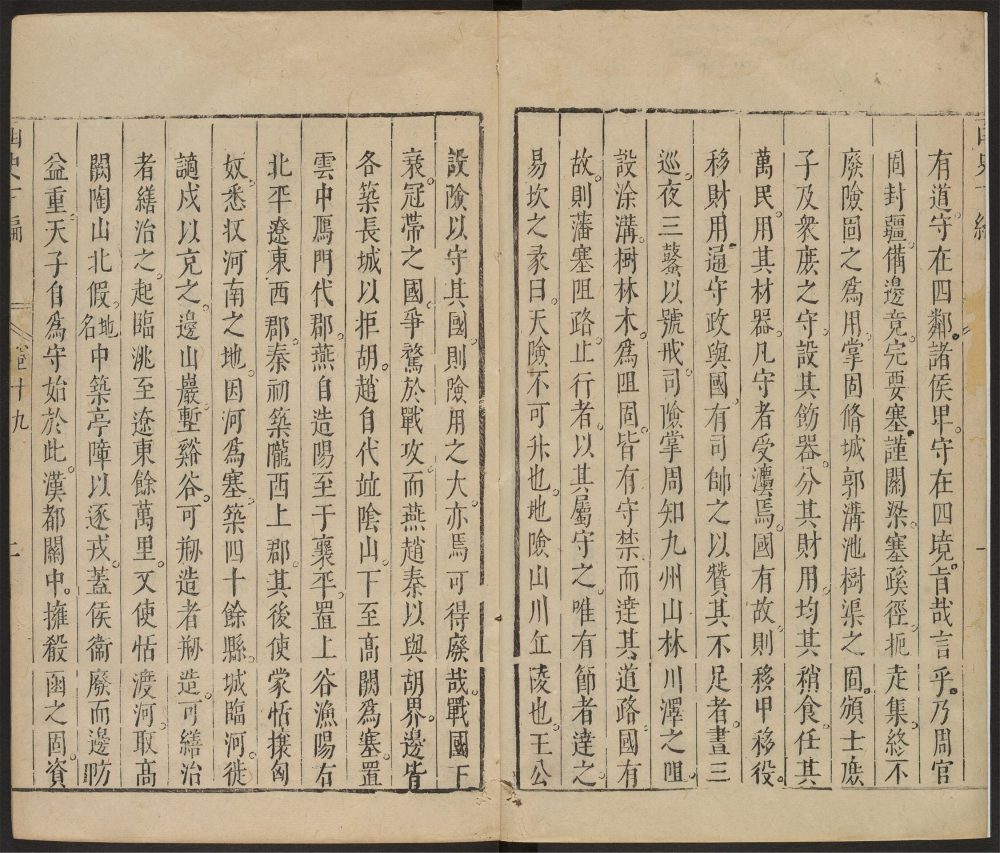 有道。守在四鄰。諸侯甲。守在四境。旨哉言乎。乃周官
固封疆。備邊竟。完要塞。謹關梁。塞蹊徑。扼走集。終不
廢險固之爲用。掌固脩城郭溝池樹渠之固。頒士庶
子及衆庶之守。設其飭器。分其財用。均其稍食。任其
萬民。用其材器。凡守者受灋焉。國有故。則移甲移役。
移財用。通守政與國。有司帥之以贊其不足者。晝三
巡。夜三鼜以號戒。司險掌周知九州山林川澤之阻。
設涂溝。樹林木。爲阻固。皆有守禁。而達其道路。國有
故。則藩塞阻路。止行者。以其屬守之。唯有節者達之。
易坎之彖曰。天險不可升也。地險山川丘陵也。王公
設險以守其國。則險用之大。亦焉可得廢哉。戰國下
衰。冠帶之國。爭騖於戰攻。而燕趙秦以與胡界。邊皆
各築長城以拒胡。趙自代竝陰山。下至高闕爲塞。置
雲中鴈門代郡。燕自造陽至于襄平。置上谷漁陽右
北平遼東西郡。秦初築隴西上郡。其後使蒙恬攘匈
奴。悉收河南之地。因河爲塞。築四十餘縣。城臨河。徙
讁戍以充之。邊山巖。塹谿谷。可剙造者剙造。可繕治
者繕治之。起臨洮至遼東餘萬里。又使恬渡河。取高
闕陶山北假。地名中築亭障以逐戎。蓋侯衞廢而邊防
益重。天子自爲守始於此。漢都關中。擁殽函之固。資
卷十九
二